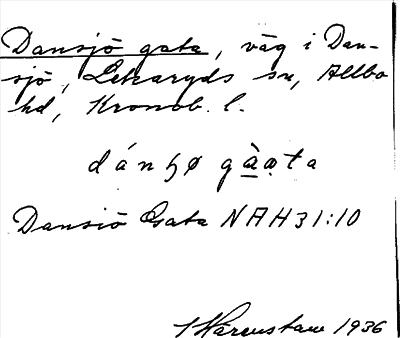 Dansjö gata, väg i Dan-
sjö, Lekaryds sn, Allbo
hd, Kronob. l.
dánꞕø gà̱ạta
Dansiö Gata NAH31:10
1936